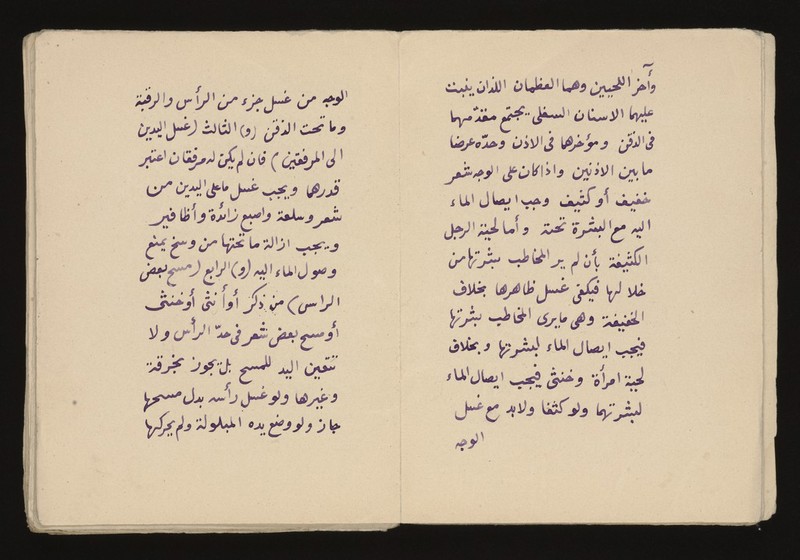 وآخر اللحيين وهما العظمان اللذان ينبت
عليهما الاسنان السفلى يجتمع مقدمهما
فى الذقن ومؤخرها فى الاذن وحدّه عرضا
ما بين الاذنين واذا كان على الوجه شعر
خفيف أو كثيف وجب ايصال الماء
اليه مع البشرة تحته وأما لحية الرجل
الكثيفة بأن لم ير المخاطب بشرتها من
خلالها فيكفى غسل ظاهرها بخلاف
الخفيفة وهى ما يرى المخاطب بشرتها
فيجب ايصال الماء لبشرتها وبخلاف
لحية امرأة وخنثى فيجب ايصال الماء
لبشرتهما ولو كثفا ولابد مع غسل
الوجه
الوجه من غسل جزء من الرأس والرقبة
وما تحت الذقن (و) الثالث (غسل اليدين
الى المرفقين) فان لم يكن له مرفقان اعتبر
قدرهما ويجب غسل ما على اليدين من
شعر وسلعة واصبع زائدة وأظافير
ويجب ازالة ما تحتها من وسخ يمنع
وصول الماء اليه (و) الرابع (مسح بعض
الراس) من ذكر أو أنثى أو خنثى
أو مسح بعض شعر فى حدّ الرأس ولا
تتعين اليد للمسح بل يجوز بخرقة
وغيرها ولو غسل رأسه بدل مسحها
جاز ولو وضع يده المبلولة ولم يحركها